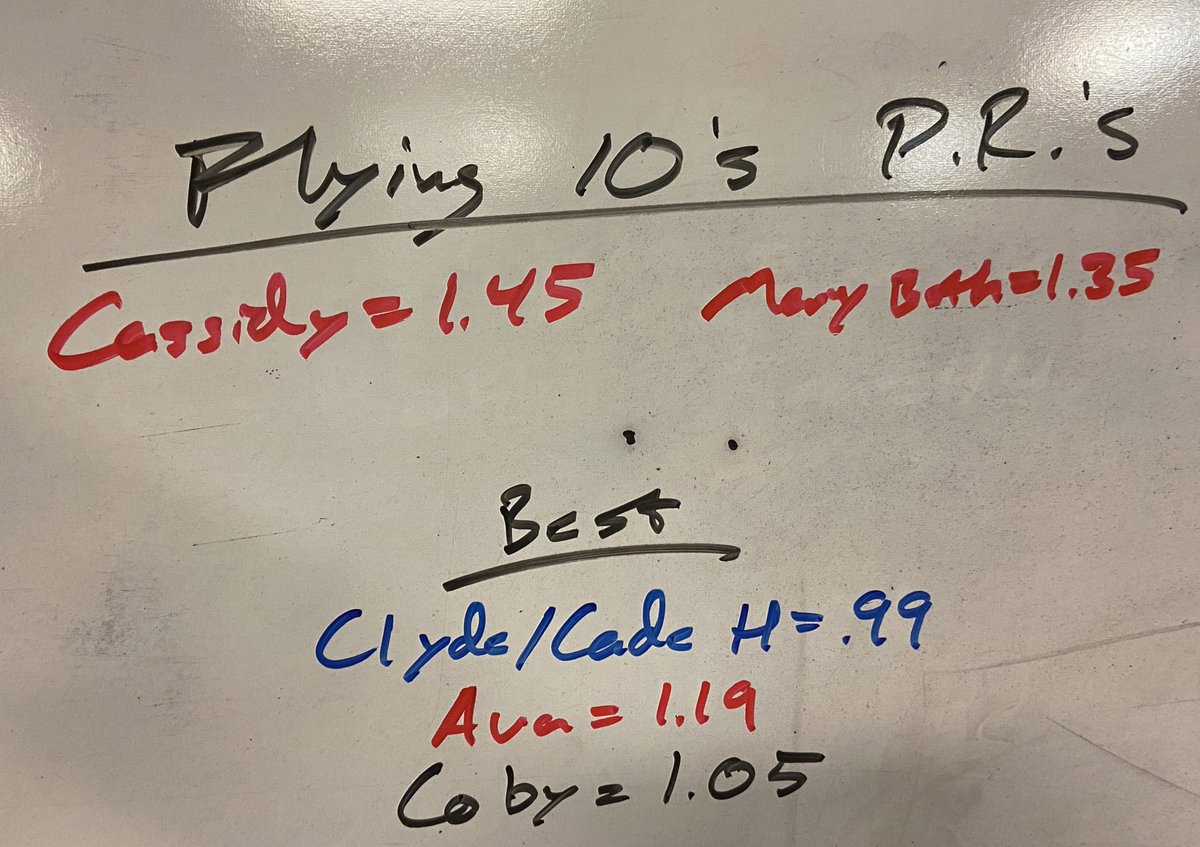 Flying 10's P.R.'s
Cassidy = 1.45 Mary Beth = 1.35
Best
Clyde/Cade H = .99
Ava = 1.19
Coby = 1.05